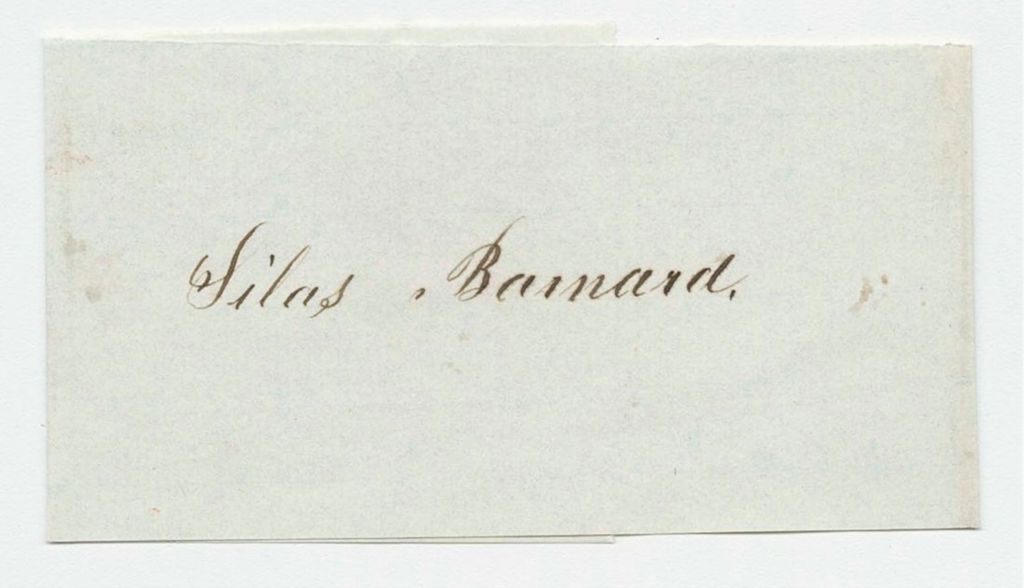 Silas Barnard.